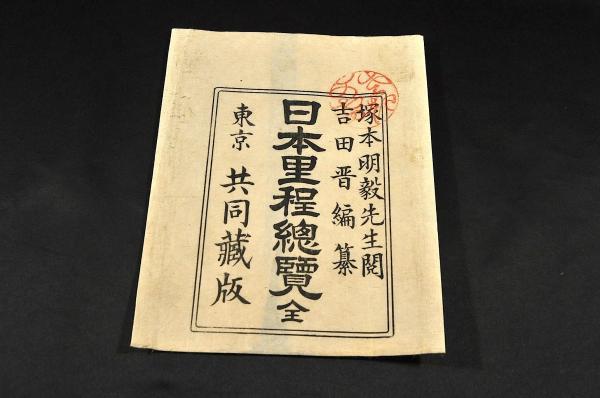 塚本明毅先生閲
吉田晋編纂
日本里程總覽全
東京 共同藏版